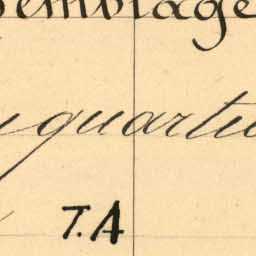 emblage
quartie
T.A